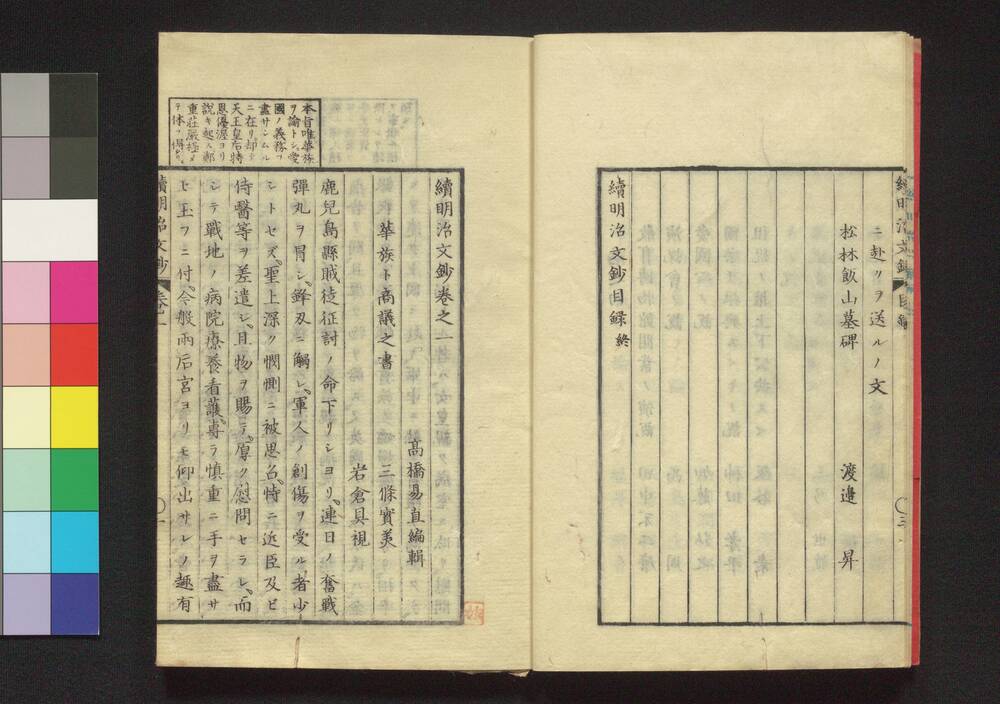 續明治文鈔 目錄
ニ赴クヲ送ルノ文
松林飯山墓碑 渡邉 昇
續明治文鈔目録 終
三
續明治文鈔卷之一
高橋易直編輯
華族ト商議之書 三條實美
岩倉具視
鹿兒島縣賊徒征討ノ命下リシヨリ、連日ノ奮戰
彈丸ヲ冒シ、鋒刃ニ觸レ、軍人ノ創傷ヲ受ル者少
シトセズ、聖上深ク憫惻ニ被思召、特ニ近臣及ビ
侍醫等ヲ差遣シ、且物ヲ賜テ、厚ク慰問セラレ、而
シテ戰地ノ病院療養看護、專ラ慎重ニ手ヲ盡サ
セ玉フニ付、今般兩后宮ヨリモ仰出サレノ趣有
本旨唯華族
ヲ諭ト、シ、愛
國ノ義務ヲ
盡サシムル
ニ在リ、却テ
天王皇后特
恩優渥ヨリ
説キ起ス、鄭
重莊嚴極メ
テ體ヲ得
續明治文鈔 卷之一
一